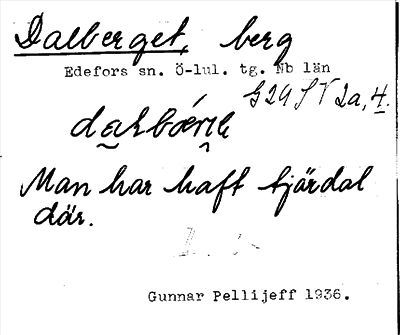 Dalberget, berg
Edefors sn. Ö-lul. tg. Nb län
G29 SV 2a, 4.
Man har haft tjärdal
där.
Gunnar Pellijeff 1936.